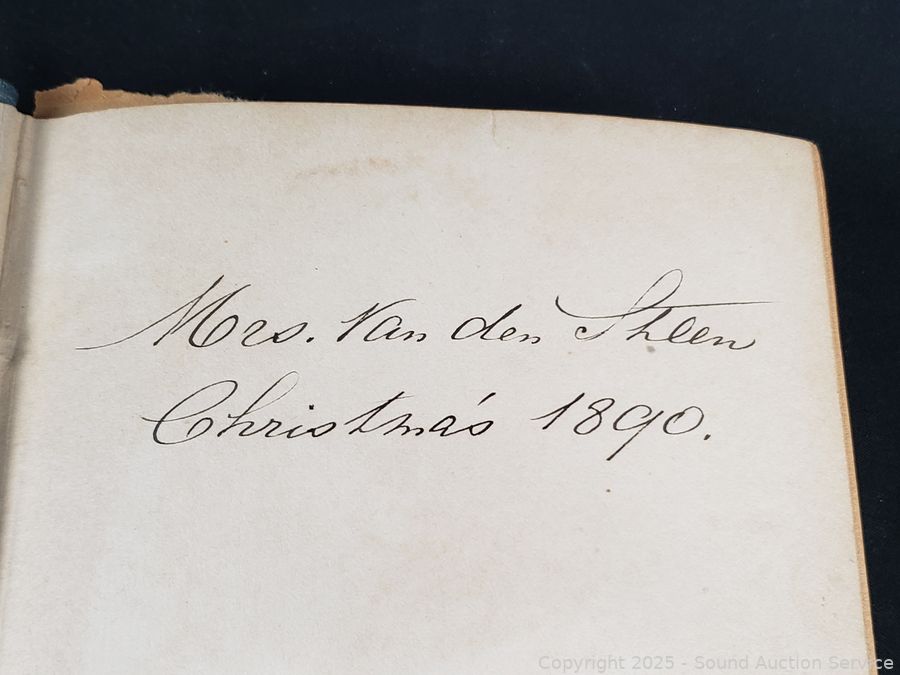 Mrs. Van den Steen
Christmas 1890.
Copyright 2025 - Sound Auction Service